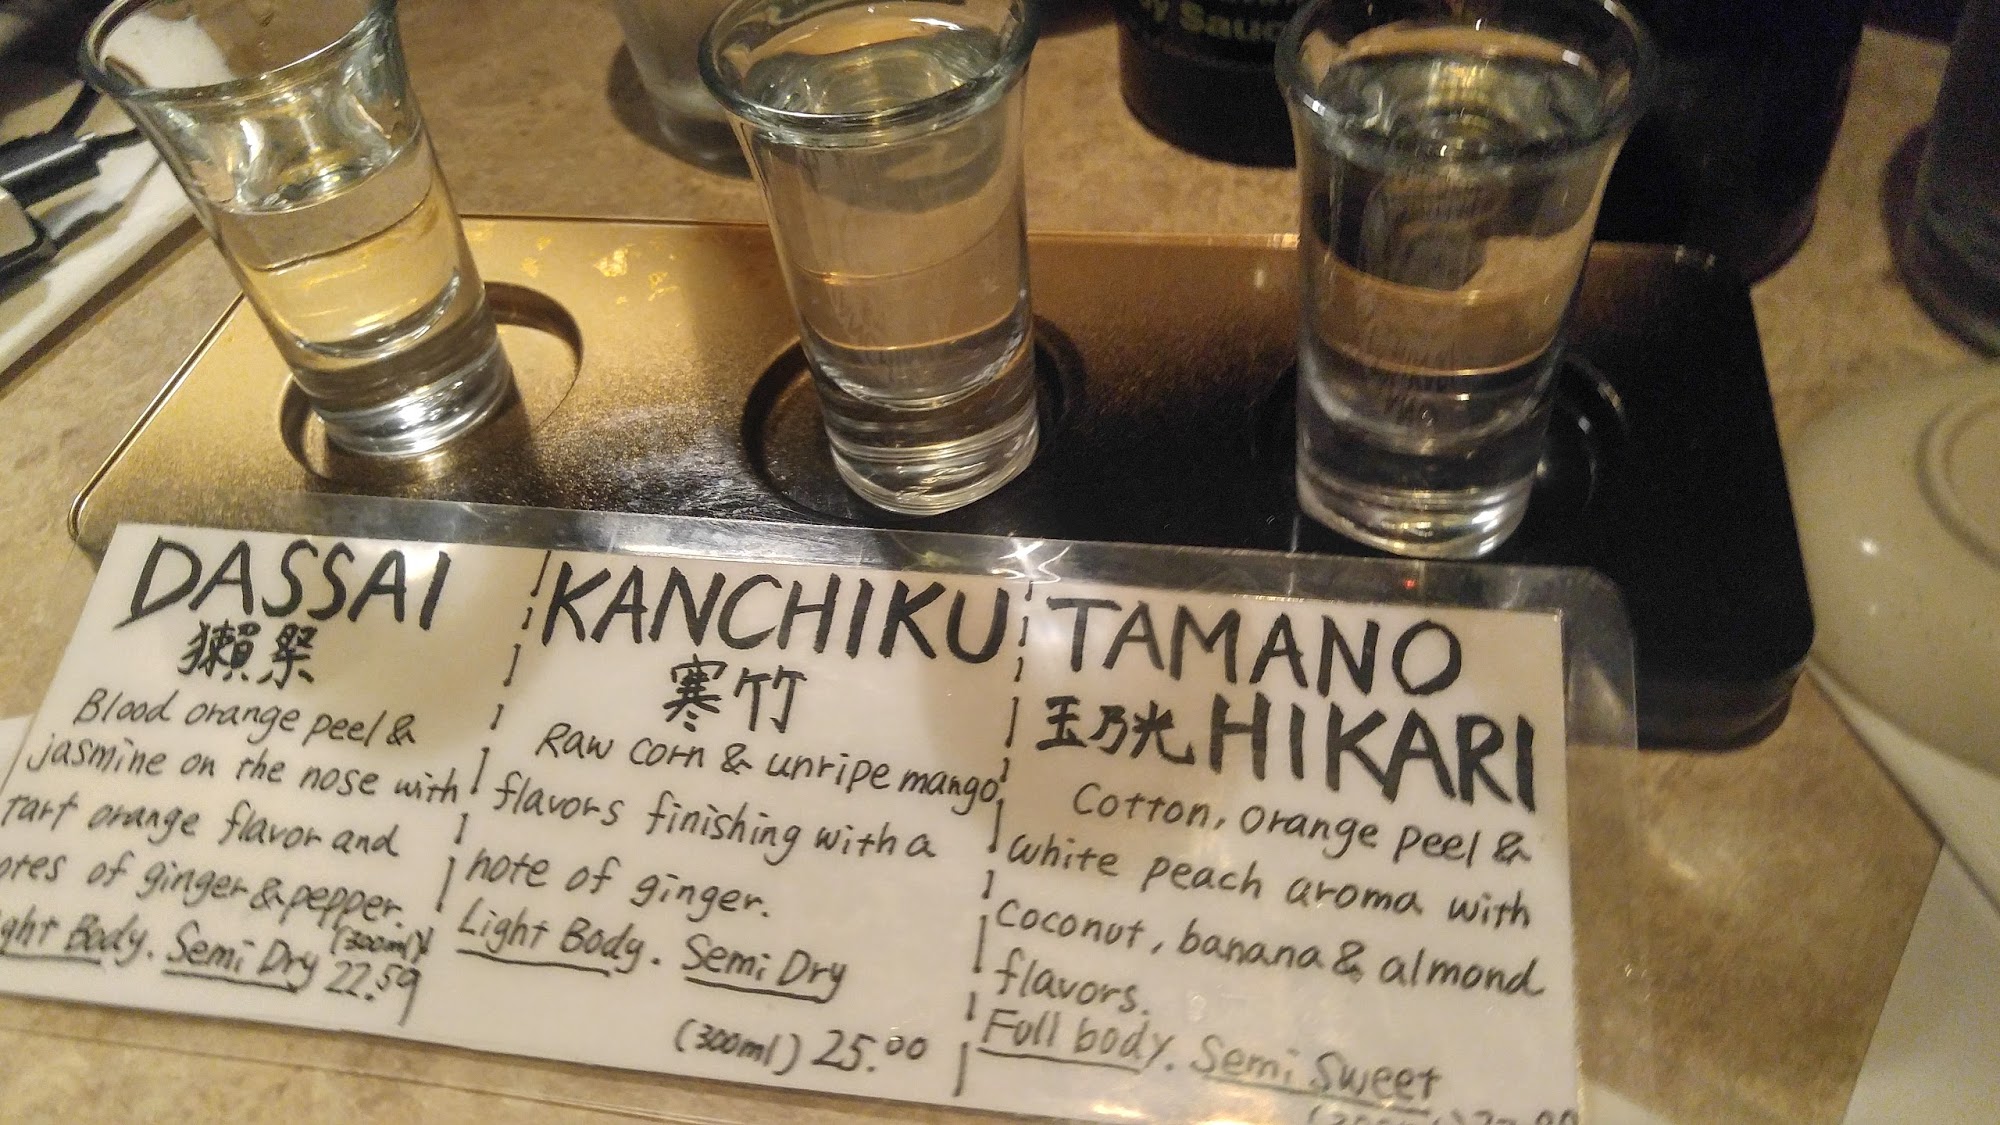 y Sauc
DASSAI
獺祭
Blood orange peel &
jasmine on the nose with
tart orange flavor and
otes of ginger & pepper.
ght Body. Semi Dry (300ml)
22.59
KANCHIKU
寒竹
Raw corn & unripe mango
flavors finishing with a
note of ginger.
Light Body. Semi Dry
(300ml) 25.00
TAMANO
玉乃光 HIKARI
Cotton, orange peel &
white peach aroma with
coconut, banana & almond
flavors.
Full body. Semi Sweet